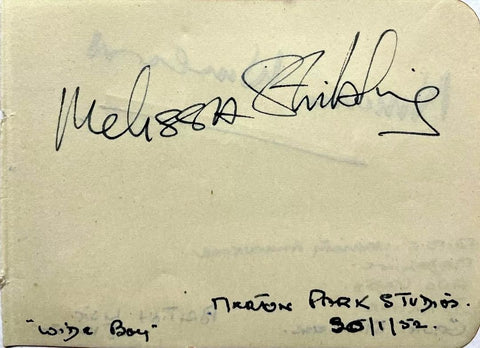 Melissa Stribling
Merton Park Studios.
"Wide Boy" 30/1/52.